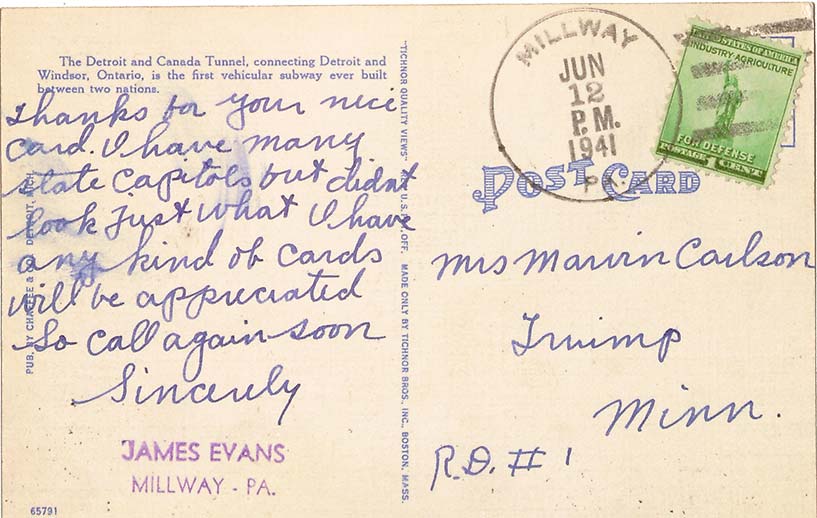 The Detroit and Canada Tunnel, connecting Detroit and
Windsor, Ontario, is the first vehicular subway ever built
between two nations.
Thanks for your nice
card. I have many
state capitols but didnt
look just what I have
any kind of cards
will be appreciated
So call again soon
Sincerely
JAMES EVANS
MILLWAY - PA.
65791
PUB. BY & DETROIT, MICH.
"TICHNOR QUALITY VIEWS" REG. U. S. PAT. OFF. MADE ONLY BY TICHNOR BROS. INC., BOSTON, MASS.
MILLWAY
JUN
12
P.M.
1941
PA.
UNITED STATES OF AMERICA
INDUSTRY AGRICULTURE
FOR DEFENSE
POSTAGE 1 CENT
POST CARD
Mrs Marvin Carlson
Minn.
R.D. # 1